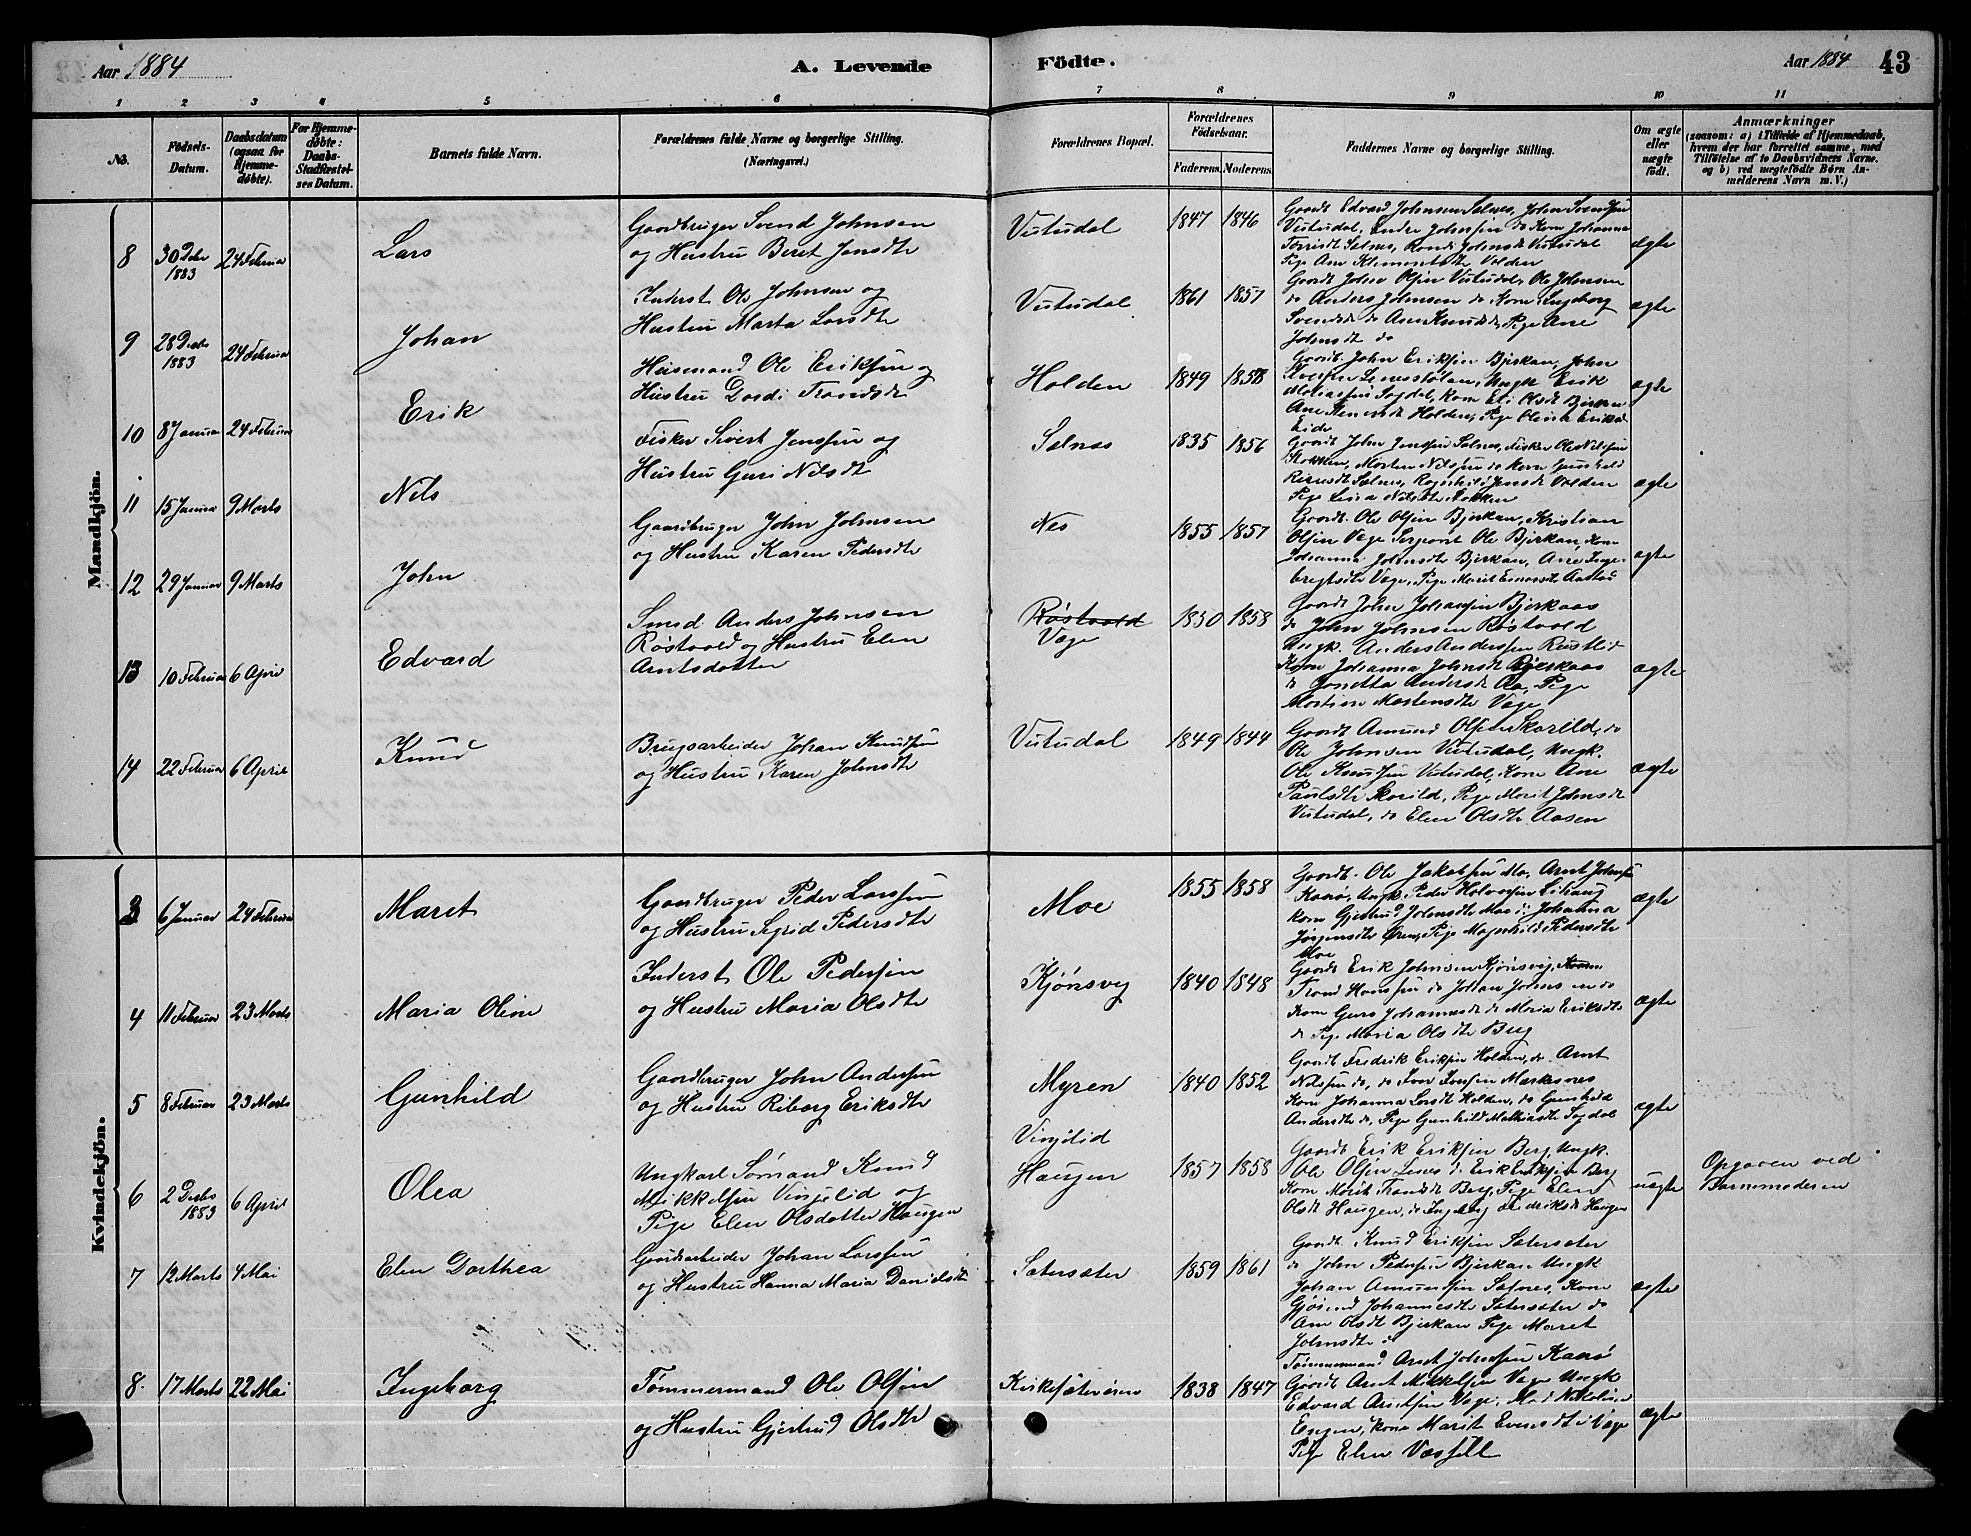 Aar 1884
A. Levende
Födte.
Aar 1884
43
1 2 3 4 5 6 7 8 9 10 11
No.
Födsels-
Datum.
Daabsdatum
(ogsaa for
Hjemme-
döbte).
For Hjemme-
döbte:
Daabs-
Stadfæstel-
ses Datum.
Barnets fulde Navn.
Forældrenes fulde Navne og borgerlige Stilling.
(Næringsvei.)
Forældrenes Bopæl.
Forældrenes
Födselsaar.
Faderens. Moderens.
Faddernes Navne og borgerlige Stilling.
Om ægte
eller
uægte
födt.
Anmærkninger
(saasom: a) i Tilfælde af Hjemmedaab,
hvem der har forrettet samme, med
Tilföielse af to Daabsvidners Navne.
og b) ved uægtefödte Börn An-
melderens Navn m. V.)
Mandkjön.
8 30 Debr 1883 24 Februar
Lars
Gaardbruger Svend Johnsen
og Hustru Beret Jonsdtr
Vutudal
1847 1846
Gaardb Edvard Johnsen Selnes, John Svendsen
Vutudal, Endre Johnsen do Kone Johanna
Selnes, Johnsdt Vutudal
Pige Ane Klemmetsdtr Volden
ægte
9 28 Decbr 1883 24 Februar
Johan
Inderst Ole Johnsen og
Hustru Marta Larsdtr
Vutudal
1861 1857
Gaardb Johan Olsen Vutudal, Ole Johnsen
do Anders Johnsen do Kone Ingeborg
Svendsdt do Ane Knudsdt, Pige Ane
Johnsdt do
ægte
10 8 Januar 24 Februar
Erik
Husmand Ole Eriksen og
Hustru Dordi Trondsdtr
Holden
1849 1858
Gaardb. John Eriksen Bjerkan, John
Ungk Erik
Mathiassen Sogdal, Kone Eli Olsdt Bjerkan
Ane Holden, Pige Olina Eriksd
Eide
ægte
11 15 Januar 9 Marts
Nils
Fisker Sivert Jenssen og
Hustru Guri Nilsdt
Selnes
1835 1856
Gaardb John Jenssen Selnes, Fisker Ole Nilssen
Stokken, Morten Nilsen do Kone Gunhild
Selnes, Ragnhild Jensdt Volden
Pige Lina Nilsdtr Stokken
ægte
12 29 Januar 9 Marts
John
Gaardbruger John Johnsen
og Hustru Karen Pedersdtr
Nes
1855 1857
Gaardb. Ole Olsen Bjerkan, Kristian
Olsen Vage Sergeant Ole Bjerkan, Kone
Johanna Johnsdt Bjerkan, Ane Inge-
brigtsdtr Vage, Pige Marit Aastad
ægte
13 10 Februar 6 April
Edvard
Smed Anders Johnsen
Røstvold og Hustru Elen
Arntsdatter
Røstvold
Vage
1850 1858
Gaardb John Johansen Bjerkaas
do John Johnsen Røstvold
Ungk. Anders Anderssen Rustlid
Kone Johanna Johnsdt Bjerkaas
do Jonetta Andersdt Aa, Pige
Martine Mortensdtr Vage
ægte
14 22 Februar 6 April
Knud
Brugsarbeider Johan Knudsen
og Hustru Karen Johnsdtr
Vutudal
1849 1844
Gaardb Amund Olsen Skarild, do
Ole Johnsen Vutudal, Ungk.
Ole Knudsen Vutudal, Kone Ane
Paulsdtr Skarild, Pige Marit Johnsdt
Vutudal, do Elen Olsdtr Aasen
ægte
Kvindekjön.
3 6 Januar 24 Februar
Maret
Gaardbruger Peder Larssen
og Hustru Sigrid Pedersdtr
Moe
1855 1858
Gaardb. Ole Jakobsen Mo, Arnt Johnsen
Kaarø, Ungk. Peder
Kone Gjertrud Johnsdtr Moe, Johanna
Jørgensdtr Øren, Pige Magnhild Pedersdtr
Moe
ægte
4 11 Februar 23 Marts
Maria Oline
Inderst Ole Pedersen
og Hustru Maria Olsdtr
Kjønsvig
1840 1848
Gaardb Erik Johnsen Kjønsvig,
Trond Hanssen do Johan Johnsen do
Kone Guro Johannesdt do Maria Eriksdtr
do Pige Maria Olsdtr Berg
ægte
5 8 Februar 23 Marts
Gunhild
Gaardbruger John Andersen
og Hustru Riborg Eriksdtr
Myren
1840 1852
Gaardb Fredrik Eriksen Holden, do Arnt
Nilsen do, do Iver Iversen Marksnes
Kone Johanna Larsdt Holden, do Gunhild
Andersdt do, Pige Gunhild Mathiasdt Sogdal
ægte
6 2 Decbr 1883 6 April
Olea
Ungkarl Sømand Knud
Mikkelsen Vingelid og
Pige Elen Olsdatter Haugen
Vingelid
Haugen
1857 1858
Gaardb Erik Eriksen Berg Ungk.
Ole Olsen do Erik Eriksen Berg
Kone Marit Berg, Pige Elen
Olsdt Haugen, do Ingeborg Fredriksdt Haugen
uægte
Opgaven ved
Barnemoderen
7 12 Marts 4 Mai
Elen Dorthea
Gaardsarbeider Johan Larssen
og Hustru Hanna Maria Danielsdtr
Sætersæter
1859 1861
Gaardb. Knud Eriksen Sætersæter
do John Pedersen Bjerkan Ungk
Johan Amundsen Selnes, Kone
Johannesdtr Sætersæter do
Ane Olsdt Bjerkan Pige Maret
Johnsdtr
ægte
8. 17 Marts 22 Mai
Ingeborg
Tømmermand Ole Olsen
og Hustru Gjertrud Olsdtr
Kirksæterøren
1838 1847
Tømmermand Arnt Johnsen Kaarø
Gaardb Arnt Mikkelsen Vage Ungk
Edvard Arntsen Vage,
Engen, Kone Marit Evensdt Vage
Pige Elen Vasfelt
ægte